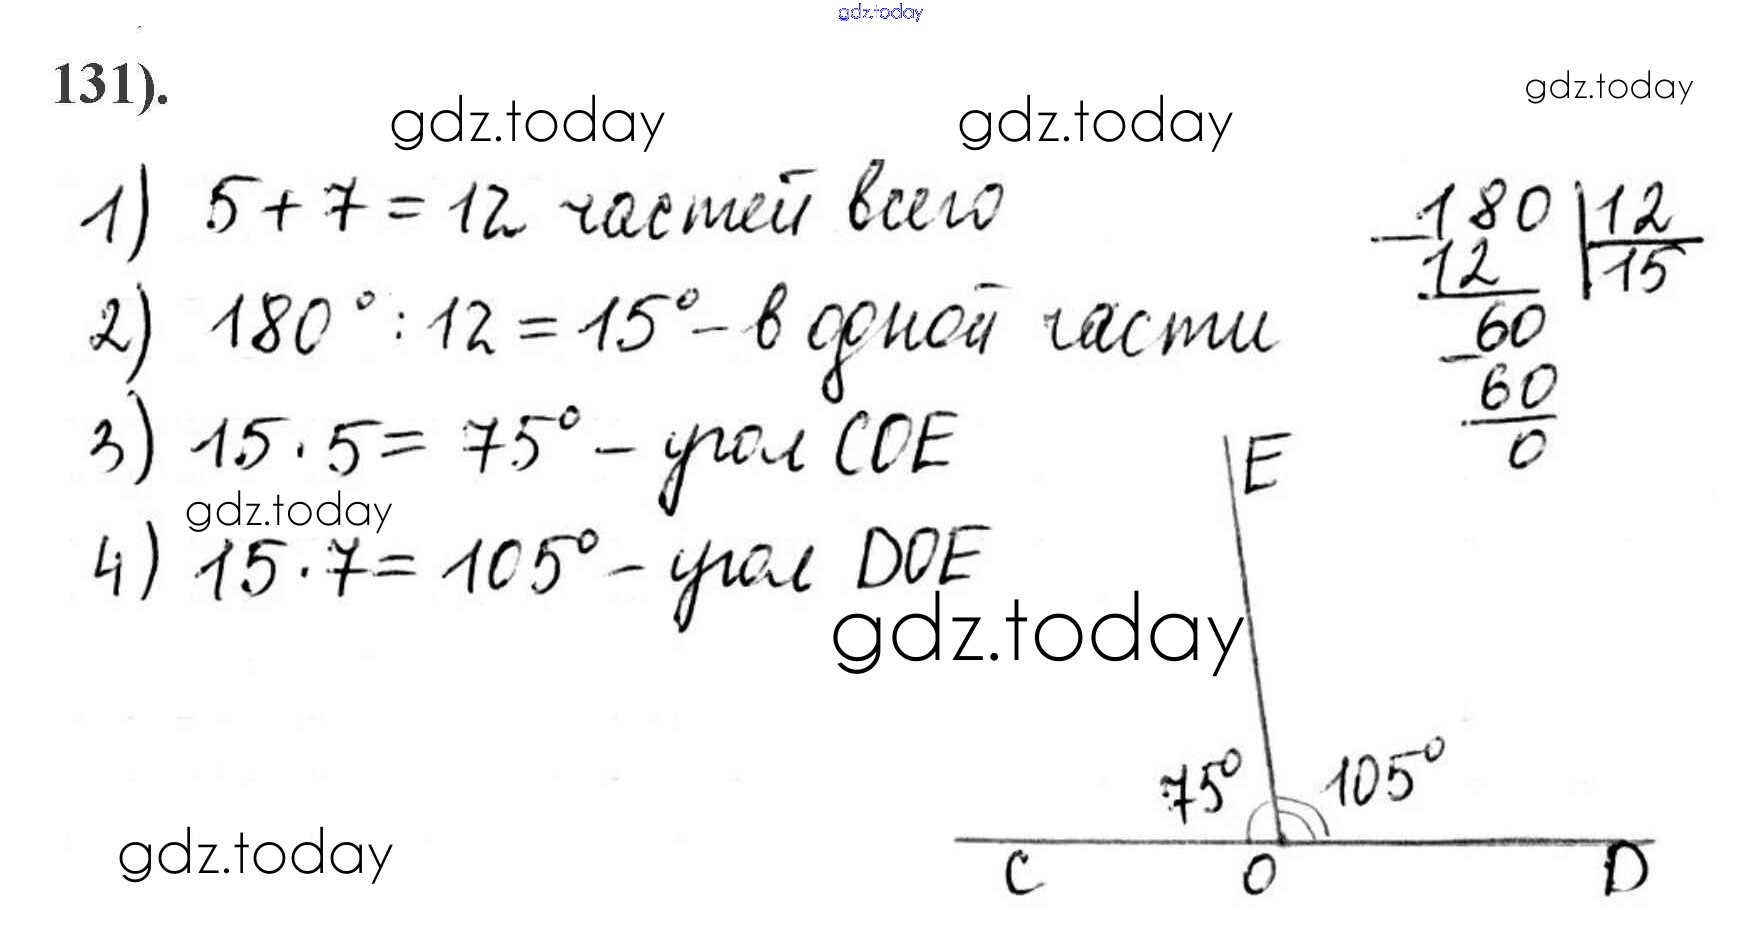 gdz.today
131).
gdz.today gdz.today gdz.today
1) 5 + 7 = 12 частей всего
2) 180° : 12 = 15° – в одной части
3) 15 · 5 = 75° – угол COE
gdz.today
4) 15 · 7 = 105° – угол DOE
gdz.today
180 12
12 15
60
60
0
E
75° 105°
C O D
gdz.today